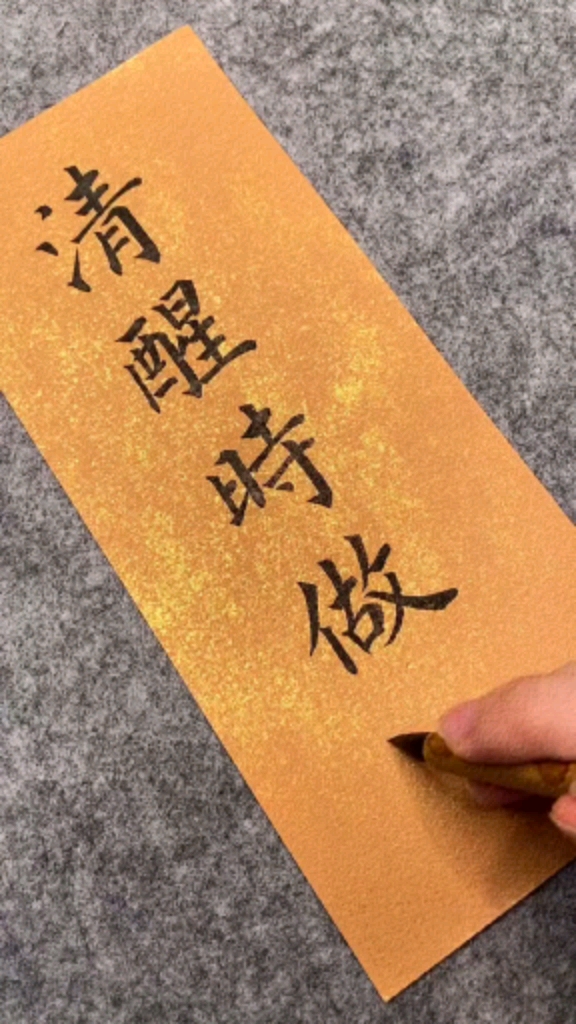 清醒時做